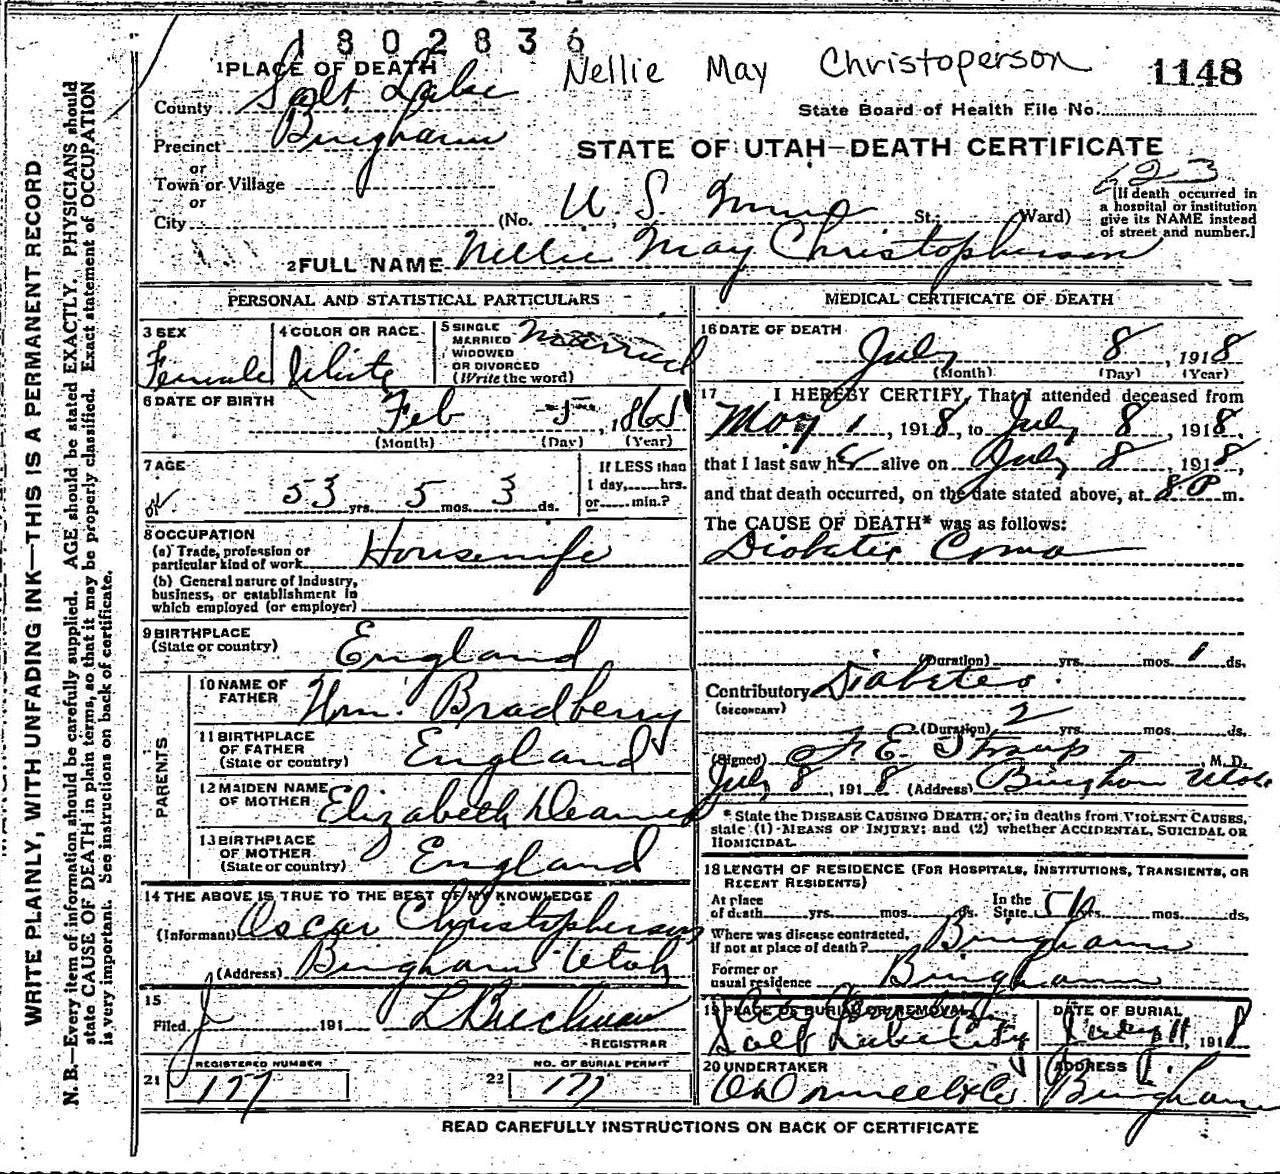 1802836
Nellie May Christoperson
1148
State Board of Health File No.
1 PLACE OF DEATH
County Salt Lake
Precinct Bingham
or
Town or Village
or
City
STATE OF UTAH—DEATH CERTIFICATE
(No. U. S. St.; Ward)
[If death occurred in
a hospital or institution
give its NAME instead
of street and number.]
2 FULL NAME Nellie May Christopherson
PERSONAL AND STATISTICAL PARTICULARS
3 SEX
Female
4 COLOR OR RACE
White
5 SINGLE
MARRIED
WIDOWED
OR DIVORCED
(Write the word)
Married
6 DATE OF BIRTH
Feb 5, 1865
(Month) (Day) (Year)
7 AGE
53 yrs. 5 mos. 3 ds.
If LESS than
1 day, hrs.
or min.?
8 OCCUPATION
(a) Trade, profession or
particular kind of work Housewife
(b) General nature of Industry,
business, or establishment in
which employed (or employer)
9 BIRTHPLACE
(State or country) England
PARENTS
10 NAME OF
FATHER Wm. Bradberry
11 BIRTHPLACE
OF FATHER
(State or country) England
12 MAIDEN NAME
OF MOTHER Elizabeth
13 BIRTHPLACE
OF MOTHER
(State or country) England
14 THE ABOVE IS TRUE TO THE BEST OF MY KNOWLEDGE
(Informant) Oscar Christopherson
(Address) Bingham Utah
15
Filed 191
REGISTRAR
REGISTERED NUMBER
21 177
NO. OF BURIAL PERMIT
22 177
MEDICAL CERTIFICATE OF DEATH
16 DATE OF DEATH
July 8, 1918
(Month) (Day) (Year)
17 I HEREBY CERTIFY, That I attended deceased from
May 1, 1918, to July 8 1918,
that I last saw her alive on July 8, 1918,
and that death occurred, on the date stated above, at 8 P m.
The CAUSE OF DEATH* was as follows:
Diabetic Coma
(Duration) yrs. mos. 1 ds.
Contributory Diabetes.
(SECONDARY)
(Duration) 2 yrs. mos. ds.
(Signed) F. E. Straup M. D.
July 8, 1918 (Address) Bingham Utah
* State the DISEASE CAUSING DEATH, or, in deaths from VIOLENT CAUSES,
state (1) MEANS OF INJURY; and (2) whether ACCIDENTAL, SUICIDAL OR
HOMICIDAL.
18 LENGTH OF RESIDENCE (FOR HOSPITALS, INSTITUTIONS, TRANSIENTS, OR
RECENT RESIDENTS)
At place
of death yrs. mos. ds.
In the
State yrs. mos. ds.
Where was disease contracted,
if not at place of death? Bingham
Former or
usual residence Bingham
19 PLACE OF BURIAL OR REMOVAL
Salt Lake City
DATE OF BURIAL
July 11, 1918
20 UNDERTAKER
O'Donnell & Co
ADDRESS
Bingham
READ CAREFULLY INSTRUCTIONS ON BACK OF CERTIFICATE
WRITE PLAINLY, WITH UNFADING INK—THIS IS A PERMANENT RECORD
N. B.—Every item of information should be carefully supplied. AGE should be stated EXACTLY. PHYSICIANS should
state CAUSE OF DEATH in plain terms, so that it may be properly classified. Exact statement of OCCUPATION
is very important. See instructions on back of certificate.